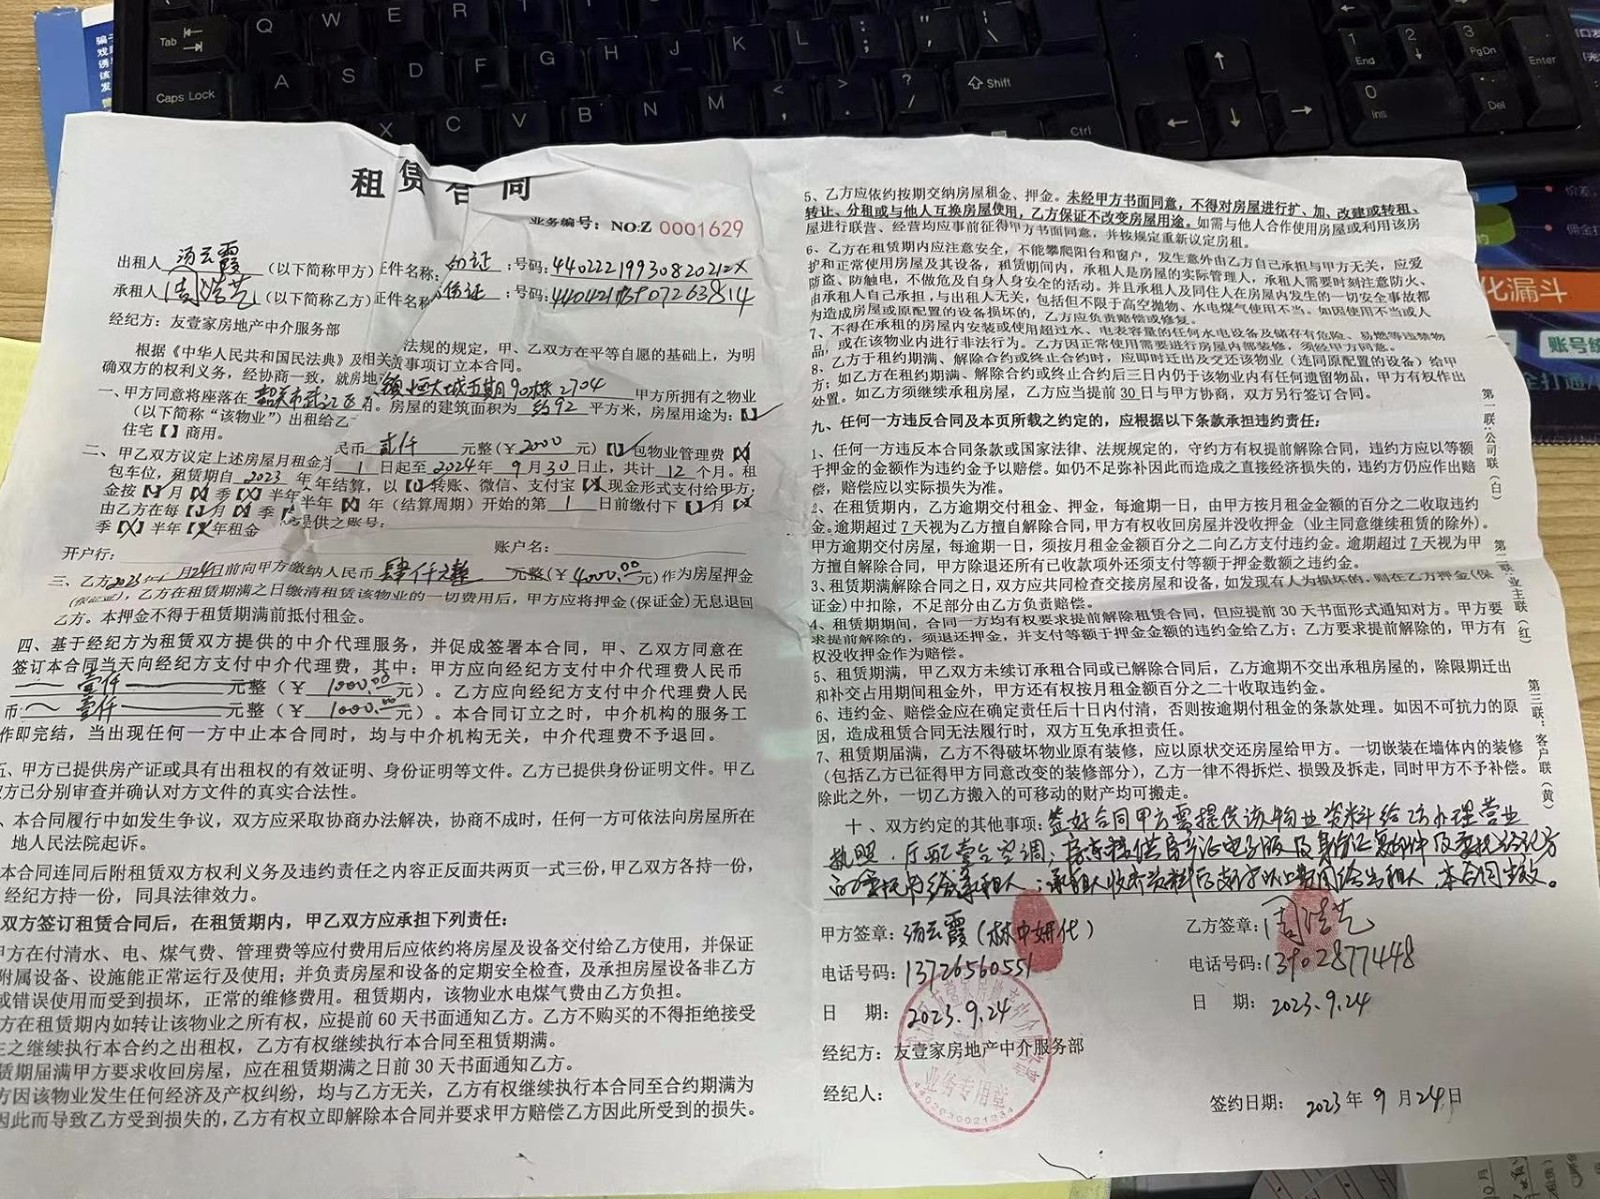 租赁合同
业务编号：NO:Z 0001629
出租人 汤云霞 （以下简称甲方）证件名称：份证 ：号码：44022219930820212X
承租人 周浩艺 （以下简称乙方）证件名称 份证 ：号码：
经纪方：友壹家房地产中介服务部
根据《中华人民共和国民法典》及相关 法规的规定，甲、乙双方在平等自愿的基础上，为明
确双方的权利义务，经协商一致，就房地 责事项订立本合同。
一、甲方同意将座落在 韶关市武江区 镇恒大城五期90栋2704 甲方所拥有之物业
（以下简称“该物业”）出租给乙 。房屋的建筑面积为 约92 平方米，房屋用途为：【】
住宅【】商用。
二、甲乙双方议定上述房屋月租金为 民币 贰仟 元整（￥2000 元）【】包物业管理费【】
包车位，租赁期自 2023 年 1 日起至 2024 年 9 月 30 日止，共计 12 个月。租
金按【】月【】季【】半年 年结算，以【】转账、微信、支付宝【】现金形式支付给甲方；
由乙方在每【】月【】季 半年【】年（结算周期）开始的第 1 日前缴付下【】月【】
季【】半年【】年租金 提供之账号：
开户行： 账户名：
三、乙方2023年 月24日前向甲方缴纳人民币 肆仟元整 元整（￥4000.00元）作为房屋押金
（保证金），乙方在租赁期满之日缴清租赁该物业的一切费用后，甲方应将押金（保证金）无息退回
乙方。本押金不得于租赁期满前抵付租金。
四、基于经纪方为租赁双方提供的中介代理服务，并促成签署本合同，甲、乙双方同意在
签订本合同当天向经纪方支付中介代理费，其中：甲方应向经纪方支付中介代理费人民币
壹仟 元整（￥ 1000.00 元）。乙方应向经纪方支付中介代理费人民
币： 壹仟 元整（￥ 1000.00 元）。本合同订立之时，中介机构的服务工
作即完结，当出现任何一方中止本合同时，均与中介机构无关，中介代理费不予退回。
五、甲方已提供房产证或具有出租权的有效证明、身份证明等文件。乙方已提供身份证明文件。甲乙
方已分别审查并确认对方文件的真实合法性。
、本合同履行中如发生争议，双方应采取协商办法解决，协商不成时，任何一方可依法向房屋所在
地人民法院起诉。
本合同连同后附租赁双方权利义务及违约责任之内容正反面共两页一式三份，甲乙双方各持一份，
经纪方持一份，同具法律效力。
双方签订租赁合同后，在租赁期内，甲乙双方应承担下列责任：
甲方在付清水、电、煤气费、管理费等应付费用后应依约将房屋及设备交付给乙方使用，并保证
附属设备、设施能正常运行及使用；并负责房屋和设备的定期安全检查，及承担房屋设备非乙方
或错误使用而受到损坏，正常的维修费用。租赁期内，该物业水电煤气费由乙方负担。
方在租赁期内如转让该物业之所有权，应提前60天书面通知乙方。乙方不购买的不得拒绝接受
主之继续执行本合约之出租权，乙方有权继续执行本合同至租赁期满。
赁期届满甲方要求收回房屋，应在租赁期满之日前30天书面通知乙方。
方因该物业发生任何经济及产权纠纷，均与乙方无关，乙方有权继续执行本合同至合约期满为
因此而导致乙方受到损失的，乙方有权立即解除本合同并要求甲方赔偿乙方因此所受到的损失。
5、乙方应依约按期交纳房屋租金、押金。未经甲方书面同意，不得对房屋进行扩、加、改建或转租、
转让、分租或与他人互换房屋使用，乙方保证不改变房屋用途。如需与他人合作使用房屋或利用该房
屋进行联营、经营均应事前征得甲方书面同意，并按规定重新议定房租。
6、乙方在租赁期内应注意安全，不能攀爬阳台和窗户，发生意外由乙方自己承担与甲方无关，应爱
护和正常使用房屋及其设备，租赁期间内，承租人是房屋的实际管理人，承租人需要时刻注意防火、
防盗、防触电，不做危及自身人身安全的活动。并且承租人及同住人在房屋内发生的一切安全事故都
由承租人自己承担，与出租人无关，包括但不限于高空抛物、水电煤气使用不当。如因使用不当或人
为造成房屋或原配置的设备损坏的，乙方应负责赔偿或修复。
7、不得在承租的房屋内安装或使用超过水、电表容量的任何水电设备及储存有危险、易燃等违禁物
品，或在该物业内进行非法行为。乙方因正常使用需要进行房屋内部装修，须经甲方同意。
8、乙方于租赁期满、解除合约或终止合约时，应即时迁出及交还该物业（连同原配置的设备）给甲
方；如乙方在租赁期满、解除合约或终止合约后三日内仍于该物业内有任何遗留物品，甲方有权作出
处置。如乙方须继续承租房屋，乙方应当提前30日与甲方协商，双方另行签订合同。
九、任何一方违反合同及本页所载之约定的，应根据以下条款承担违约责任：
1、任何一方违反本合同条款或国家法律、法规规定的，守约方有权提前解除合同，违约方应以等额
于押金的金额作为违约金予以赔偿。如仍不足弥补因此而造成之直接经济损失的，违约方仍应作出赔
偿，赔偿应以实际损失为准。
2、在租赁期内，乙方逾期交付租金、押金，每逾期一日，由甲方按月租金金额的百分之二收取违约
金。逾期超过7天视为乙方擅自解除合同，甲方有权收回房屋并没收押金（业主同意继续租赁的除外）。
甲方逾期交付房屋，每逾期一日，须按月租金金额百分之二向乙方支付违约金。逾期超过7天视为甲
方擅自解除合同，甲方除退还所有已收款项外还须支付等额于押金数额之违约金。
3、租赁期满解除合同之日，双方应共同检查交接房屋和设备，如发现有人为损坏的，则在乙方押金（保
证金）中扣除，不足部分由乙方负责赔偿。
4、租赁期期间，合同一方均有权要求提前解除租赁合同，但应提前30天书面形式通知对方。甲方要
求提前解除的，须退还押金，并支付等额于押金金额的违约金给乙方；乙方要求提前解除的，甲方有
权没收押金作为赔偿。
5、租赁期满，甲乙双方未续订承租合同或已解除合同后，乙方逾期不交出承租房屋的，除限期迁出
和补交占用期间租金外，甲方还有权按月租金额百分之二十收取违约金。
6、违约金、赔偿金应在确定责任后十日内付清，否则按逾期付租金的条款处理。如因不可抗力的原
因，造成租赁合同无法履行时，双方互免承担责任。
7、租赁期届满，乙方不得破坏物业原有装修，应以原状交还房屋给甲方。一切嵌装在墙体内的装修
（包括乙方已征得甲方同意改变的装修部分），乙方一律不得拆烂、损毁及拆走，同时甲方不予补偿。
除此之外，一切乙方搬入的可移动的财产均可搬走。
十、双方约定的其他事项：签好合同甲方需提供该物业资料给乙方办理营业
执照，厅配壹台空调；房东提供房产证电子版及身份证复印件及委托经纪方
的委托书给承租人；承租人收齐资料后支付以上费用给出租人，本合同生效。
甲方签章：汤云霞（林中妍代）
电话号码：13726560551
日 期：2023.9.24
经纪方：友壹家房地产中介服务部
经纪人：
乙方签章：周浩艺
电话号码：13902877448
日 期：2023.9.24
签约日期：2023年9月24日
第一联：公司联（白）
第二联：业主联（红）
第三联：客户联（黄）
Tab
Caps Lock
Q W E R T Y U I O P
A S D F G H J K L
X C V B N M
Shift
Ctrl
1 End
2
3 PgDn
Enter
0 Ins
Del
化漏斗
账号